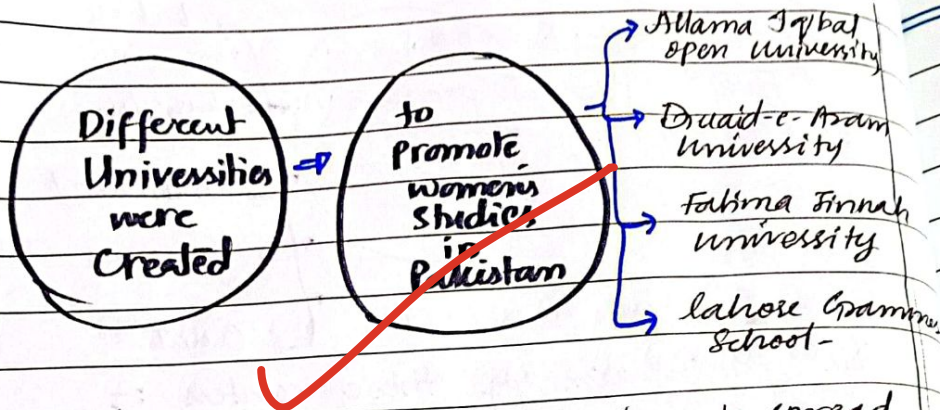 Different
Universities
were
Created
to
promote
women's
studies
in
Pakistan
Allama Iqbal
open University
Quaid-e-Azam
University
Fatima Jinnah
University
lahore Grammar
School-
spread